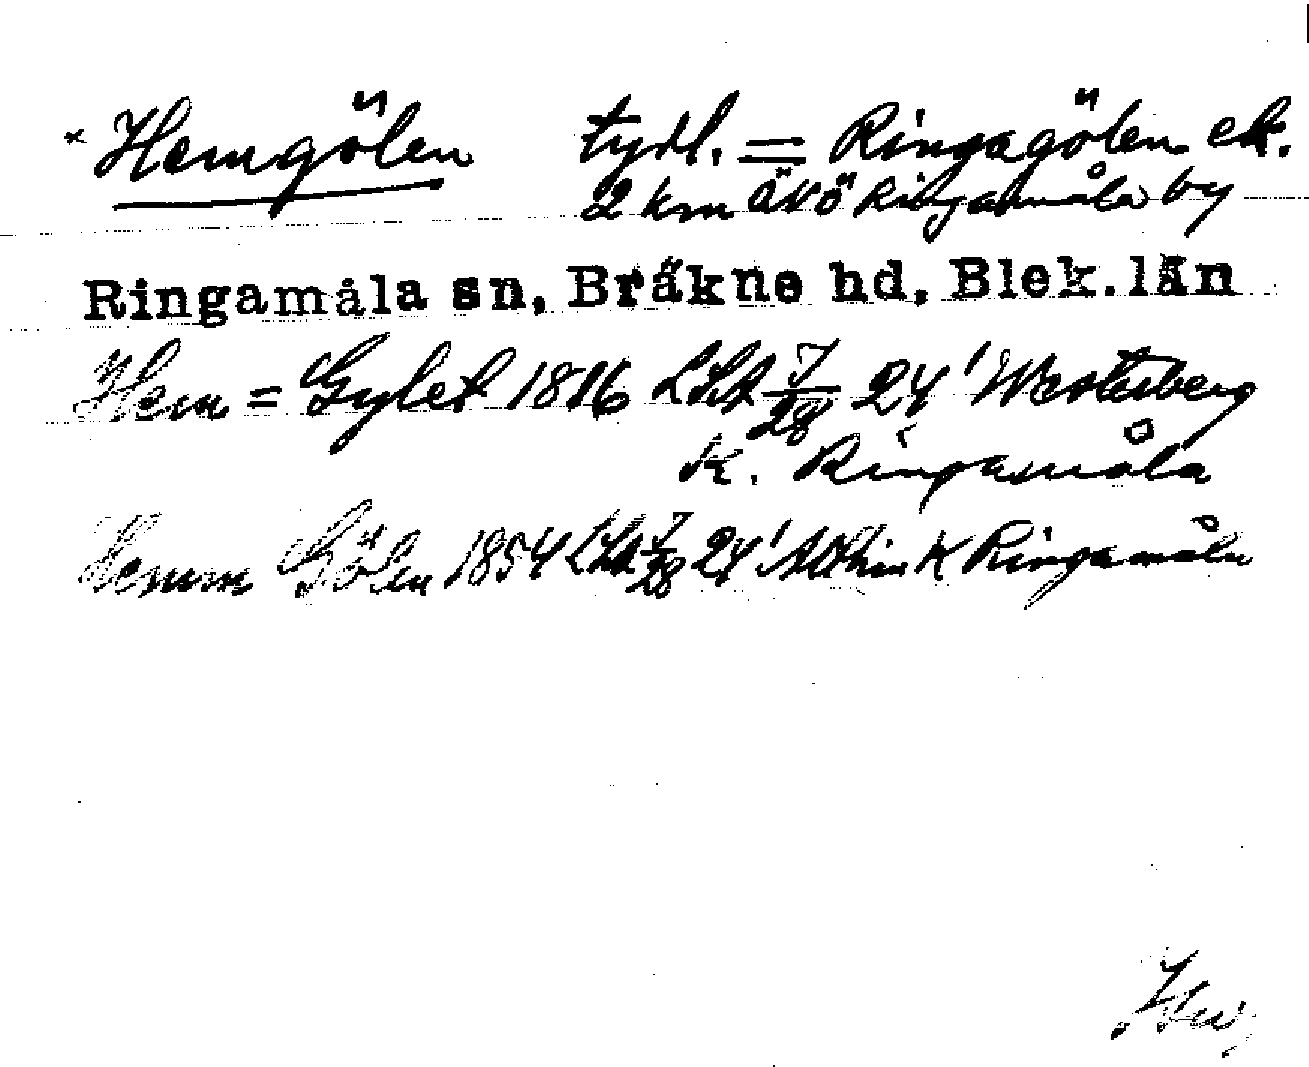 * Hemgölen tydl. = Ringagölen ek.
2 km ÄVÖ Ringamåla by
Ringamåla sn, Bräkne hd, Blek. län
Hem = Gylet 1816 LSA 7/28 24' Westerberg
K. Ringamåla
Hemm Gölen 1854 LSA 7/28 24' K Ringamåla